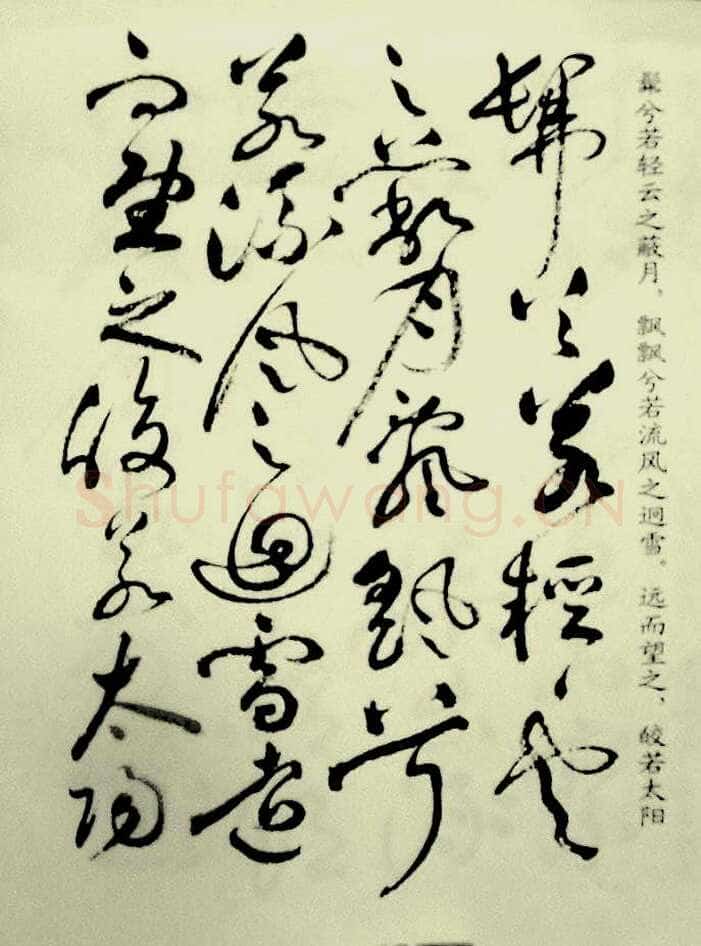 髴兮若轻云之蔽月，飘飘兮若流风之迥雪。远而望之，皎若太阳
髴兮若輕雲
之蔽月飄飖兮
若流風之迴雪遠
而望之皎若太陽
Shufawang.CN